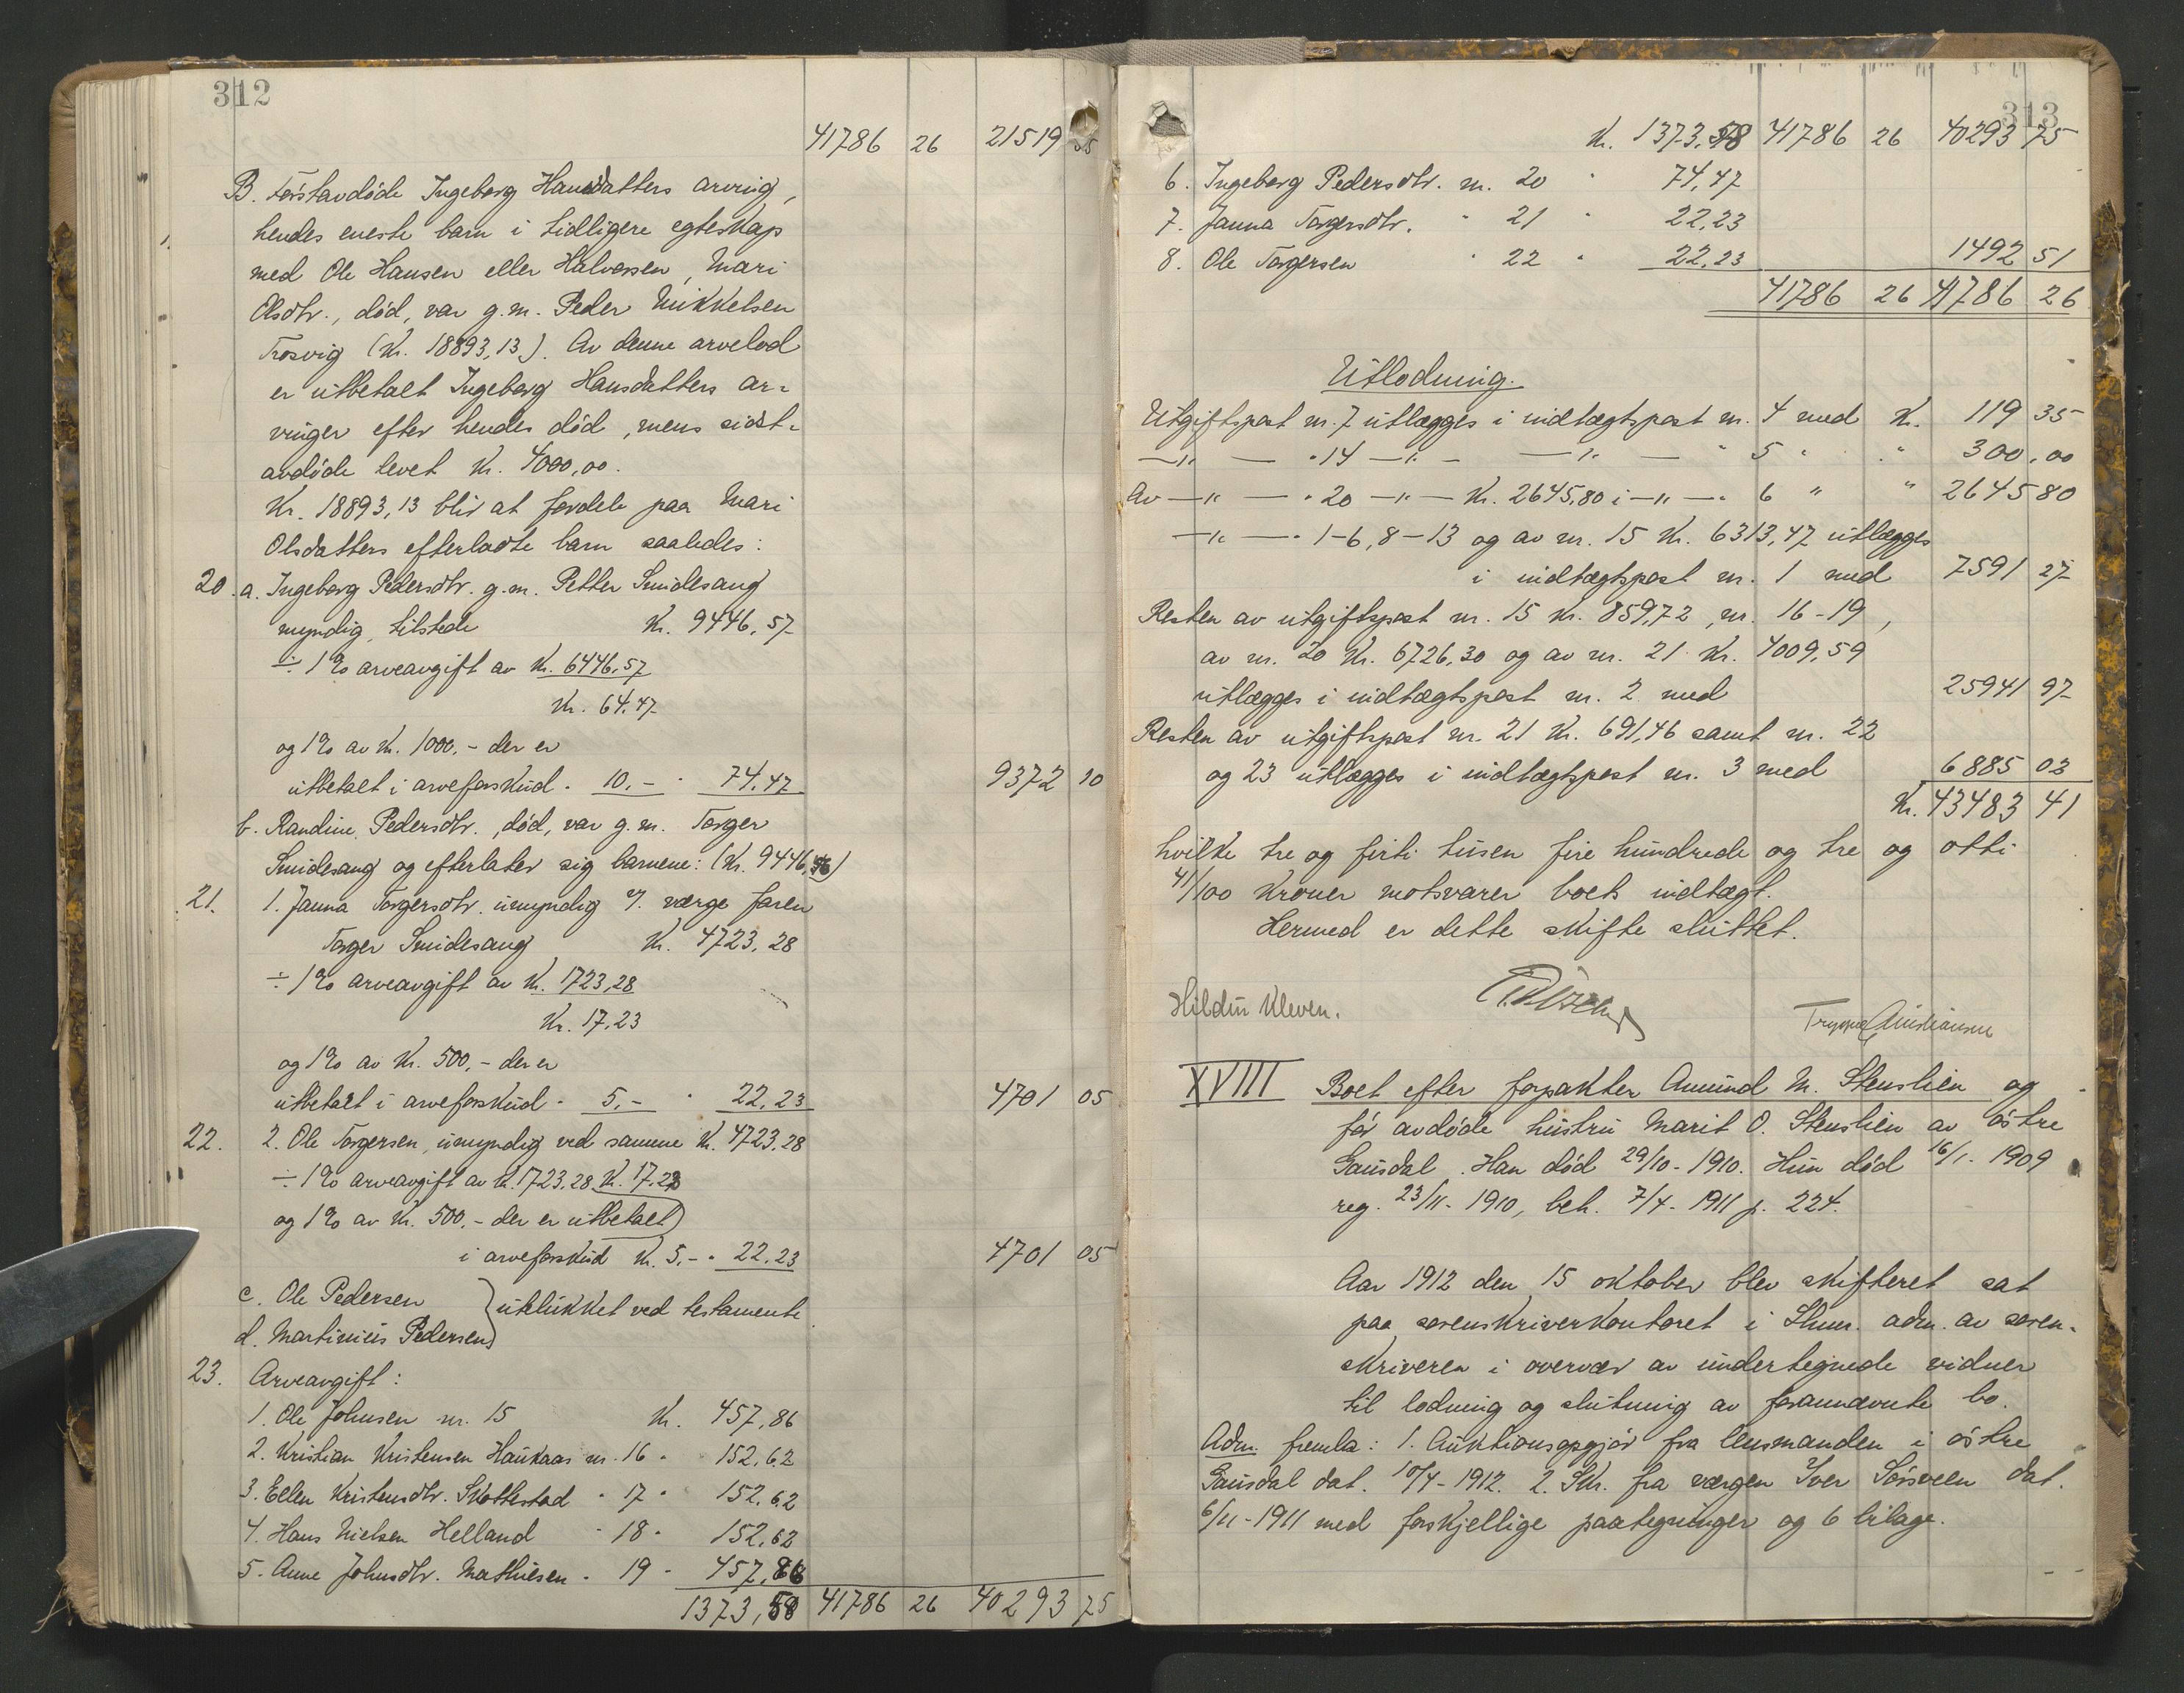 312
41786 26 21519 55
B. Førstavdøde Ingeborg Hansdatters arving,
hendes eneste barn i tidligere egteskap
med Ole Hansen eller Halvorsen, Mari
Olsdtr., død, var g.m. Peder Mikkelsen
Trosvig (Kr. 18893,13). Av denne arvelod
er utbetalt Ingeborg Hansdatters ar-
vinger efter hendes død, mens sidst-
avdøde levet Kr. 4000,00.
Kr. 18893,13 blir at fordele paa Mari
Olsdatters efterladte barn saaledes:
20. a. Ingeborg Pedersdtr. g.m. Petter Smidesang
myndig, tilstede Kr. 9446,57
÷ 1% arveavgift av Kr. 6446,57
Kr. 64.47
og 1% av Kr. 1000,- der er
utbetalt i arveforskud " 10,- " 74.47 9372 10
b. Randine Pedersdtr., død, var g.m. Torger
Smidesang og efterlater sig barnene: (Kr. 9446,56)
21. 1. Janna Torgersdtr. umyndig v. værge faren
Torger Smidesang Kr. 4723,28
÷ 1% arveavgift av Kr. 1723,28
Kr. 17,23
og 1% av Kr. 500,- der er
utbetalt i arveforskud " 5,- " 22.23 4701 05
22. 2. Ole Torgersen, umyndig ved samme Kr. 4723,28
÷ 1% arveavgift av Kr. 1723.28 Kr. 17.23
og 1% av Kr. 500,- der er utbetalt
i arveforskud Kr. 5,- " 22.23 4701 05
c. Ole Pedersen
} utelukket ved testamente.
d. Martinius Pedersen
23. Arveavgift:
1. Ole Johnsen nr. 15 Kr. 457,86
2. Kristian Kristensen Haukaas nr. 16 " 152,62
3. Ellen Kristensdtr. Skottestad " 17 " 152,62
4. Hans Nielsen Helland " 18 " 152,62
5. Anne Johnsdtr. Mathiesen " 19 " 457,86
1373,58 41786 26 40293 75
313
Kr. 1373,58 41786 26 40293 75
6. Ingeborg Pedersdtr. nr. 20 " 74,47
7. Janna Torgersdtr. " 21 " 22,23
8. Ole Torgersen " 22 " 22,23 1492 51
41786 26 41786 26
Utlodning.
Utgiftspost nr. 7 utlægges i indtægtspost nr. 4 med Kr. 119 35
—"— " 14 —"— —"— " 5 " " 300,00
Av —"— " 20 —"— Kr. 2645,80 i —"— " 6 " " 2645 80
—"— " 1-6, 8-13 og av nr. 15 Kr. 6313,47 utlægges
i indtægtspost nr. 1 med 7591 27
Resten av utgiftspost nr. 15 Kr. 859,72, nr. 16-19,
av nr. 20 Kr. 6726,30 og av nr. 21 Kr. 4009,59
utlægges i indtægtspost nr. 2 med 25941 97
Resten av utgiftspost nr. 21 Kr. 691,46 samt nr. 22
og 23 utlægges i indtægtspost nr. 3 med 6885 02
Kr. 43483 41
hvilke tre og firti tusen fire hundrede og tre og otti
41/100 kroner motsvarer boets indtægt.
Hermed er dette skifte sluttet.
Hildur Kleven.
XVIII Boet efter forpakter Amund M. Stenslien og
før avdøde hustru Marit O. Stenslien av østre
Gausdal. Han død 29/10-1910. Hun død 16/1-1909
reg. 23/11-1910, beh. 7/4-1911 p. 224.
Aar 1912 den 15 oktober blev skifteret sat
paa sorenskriverkontoret i Lhmr. adm. av soren-
skriveren i overvær av undertegnede vidner
til lodning og slutning av forannævnte bo.
Adm. fremla: 1. Auktionsopgjør fra lensmanden i østre
Gausdal dat. 10/4-1912. 2. Skr. fra værgen Iver Sørsveen dat.
6/11-1911 med forskjellige paategninger og 6 bilage.